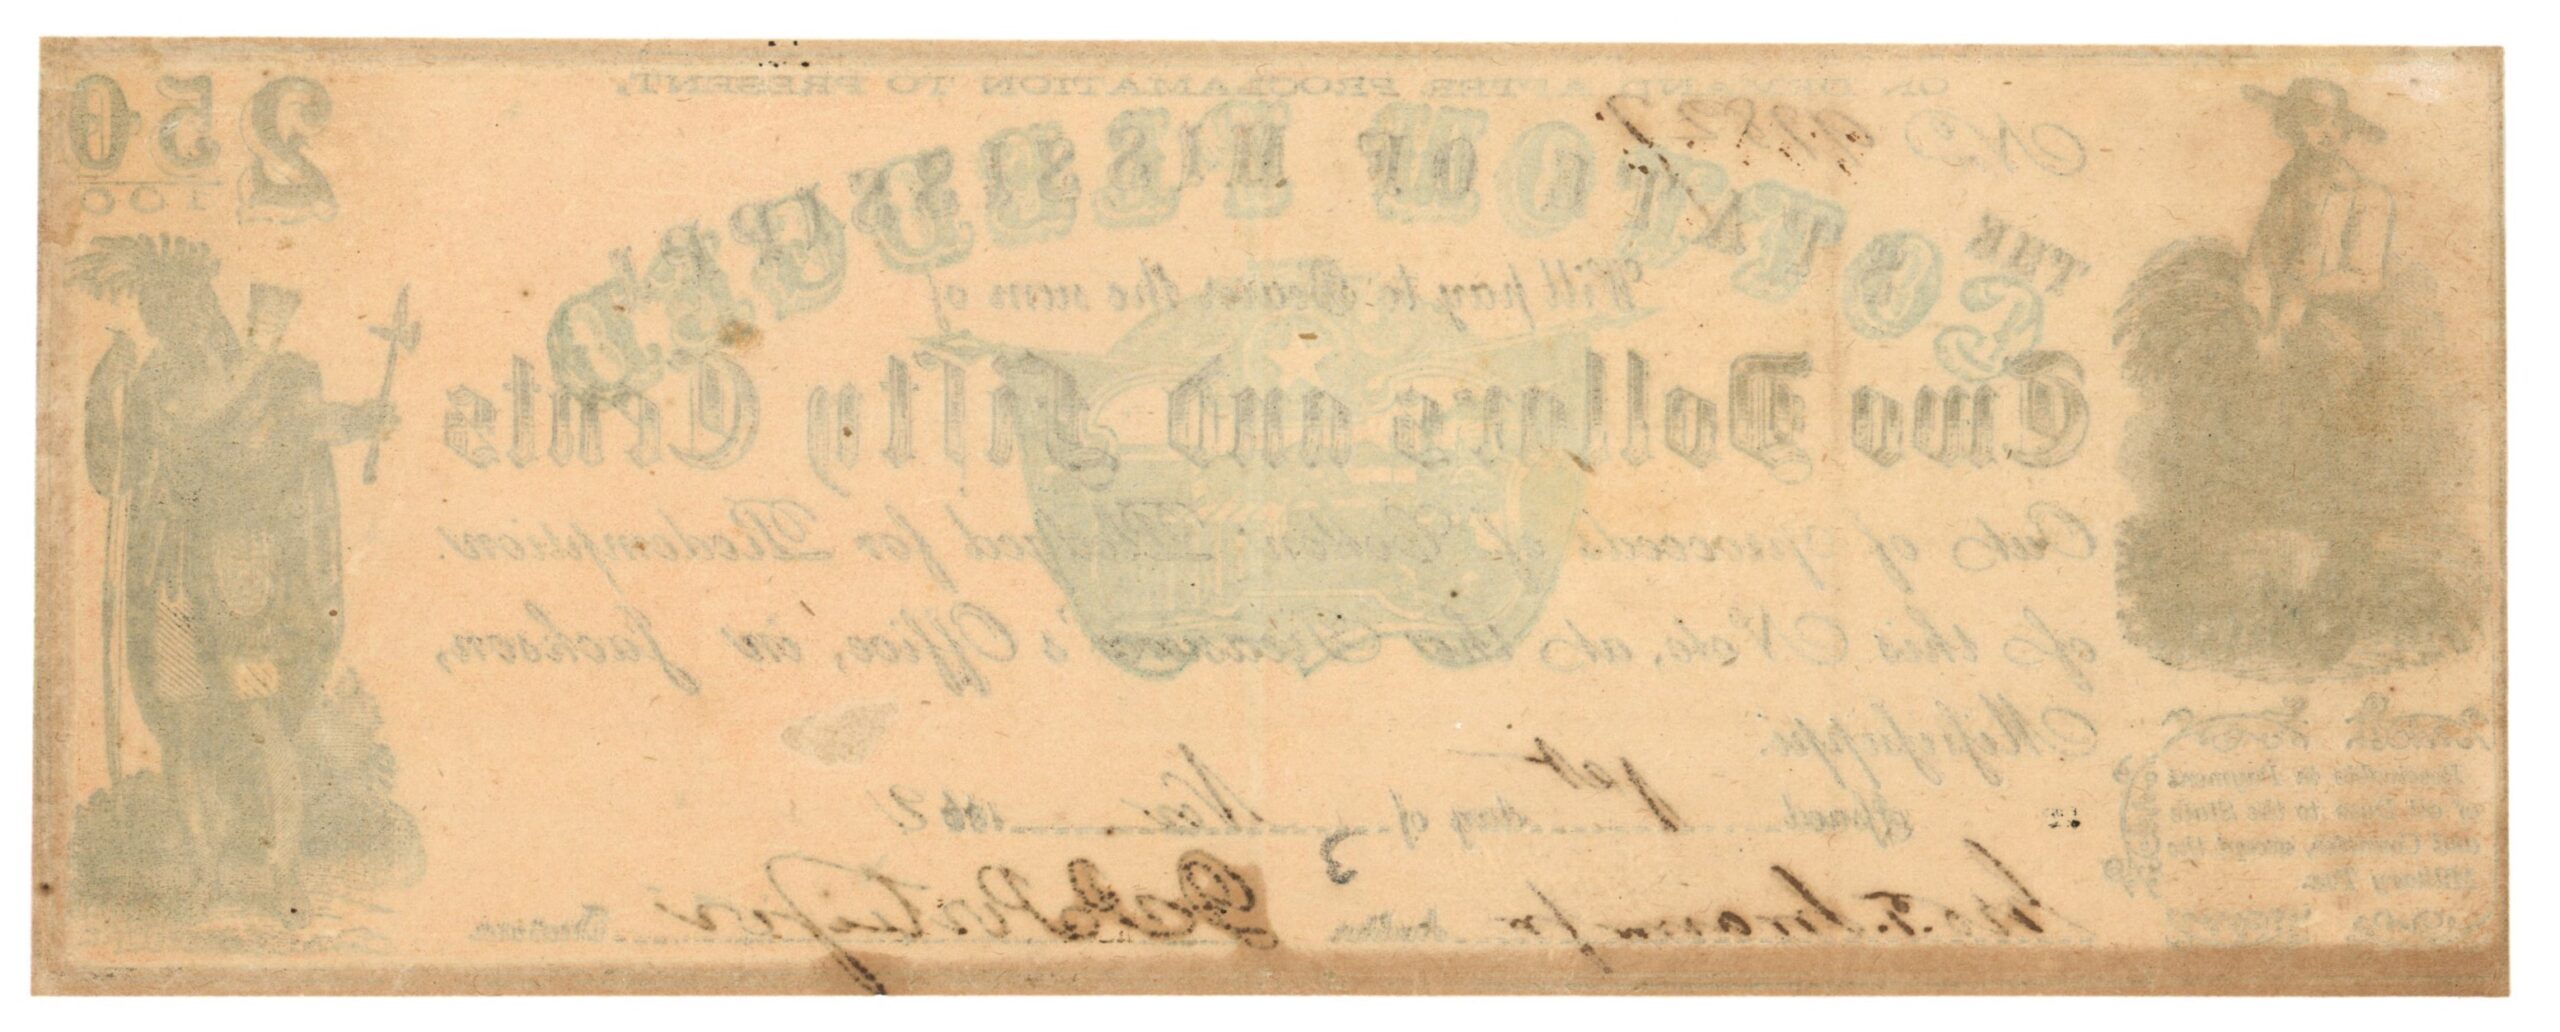 ON DEMAND AFTER PROCLAMATION TO PRESENT,
No
2 50/100
THE STATE OF MISSISSIPPI
COTTON PLEDGED
Will pay to Bearer the sum of
Two Dollars and Fifty Cents
Out of proceeds of Cotton Pledged for Redemption
of this Note, at the Treasurer's Office, in Jackson,
Mississippi.
Issued 1st day of Nov 1862
3
Auditor
Treasurer
Receivable in Payment
of all Dues to the State
and Counties, except the
Military Tax.